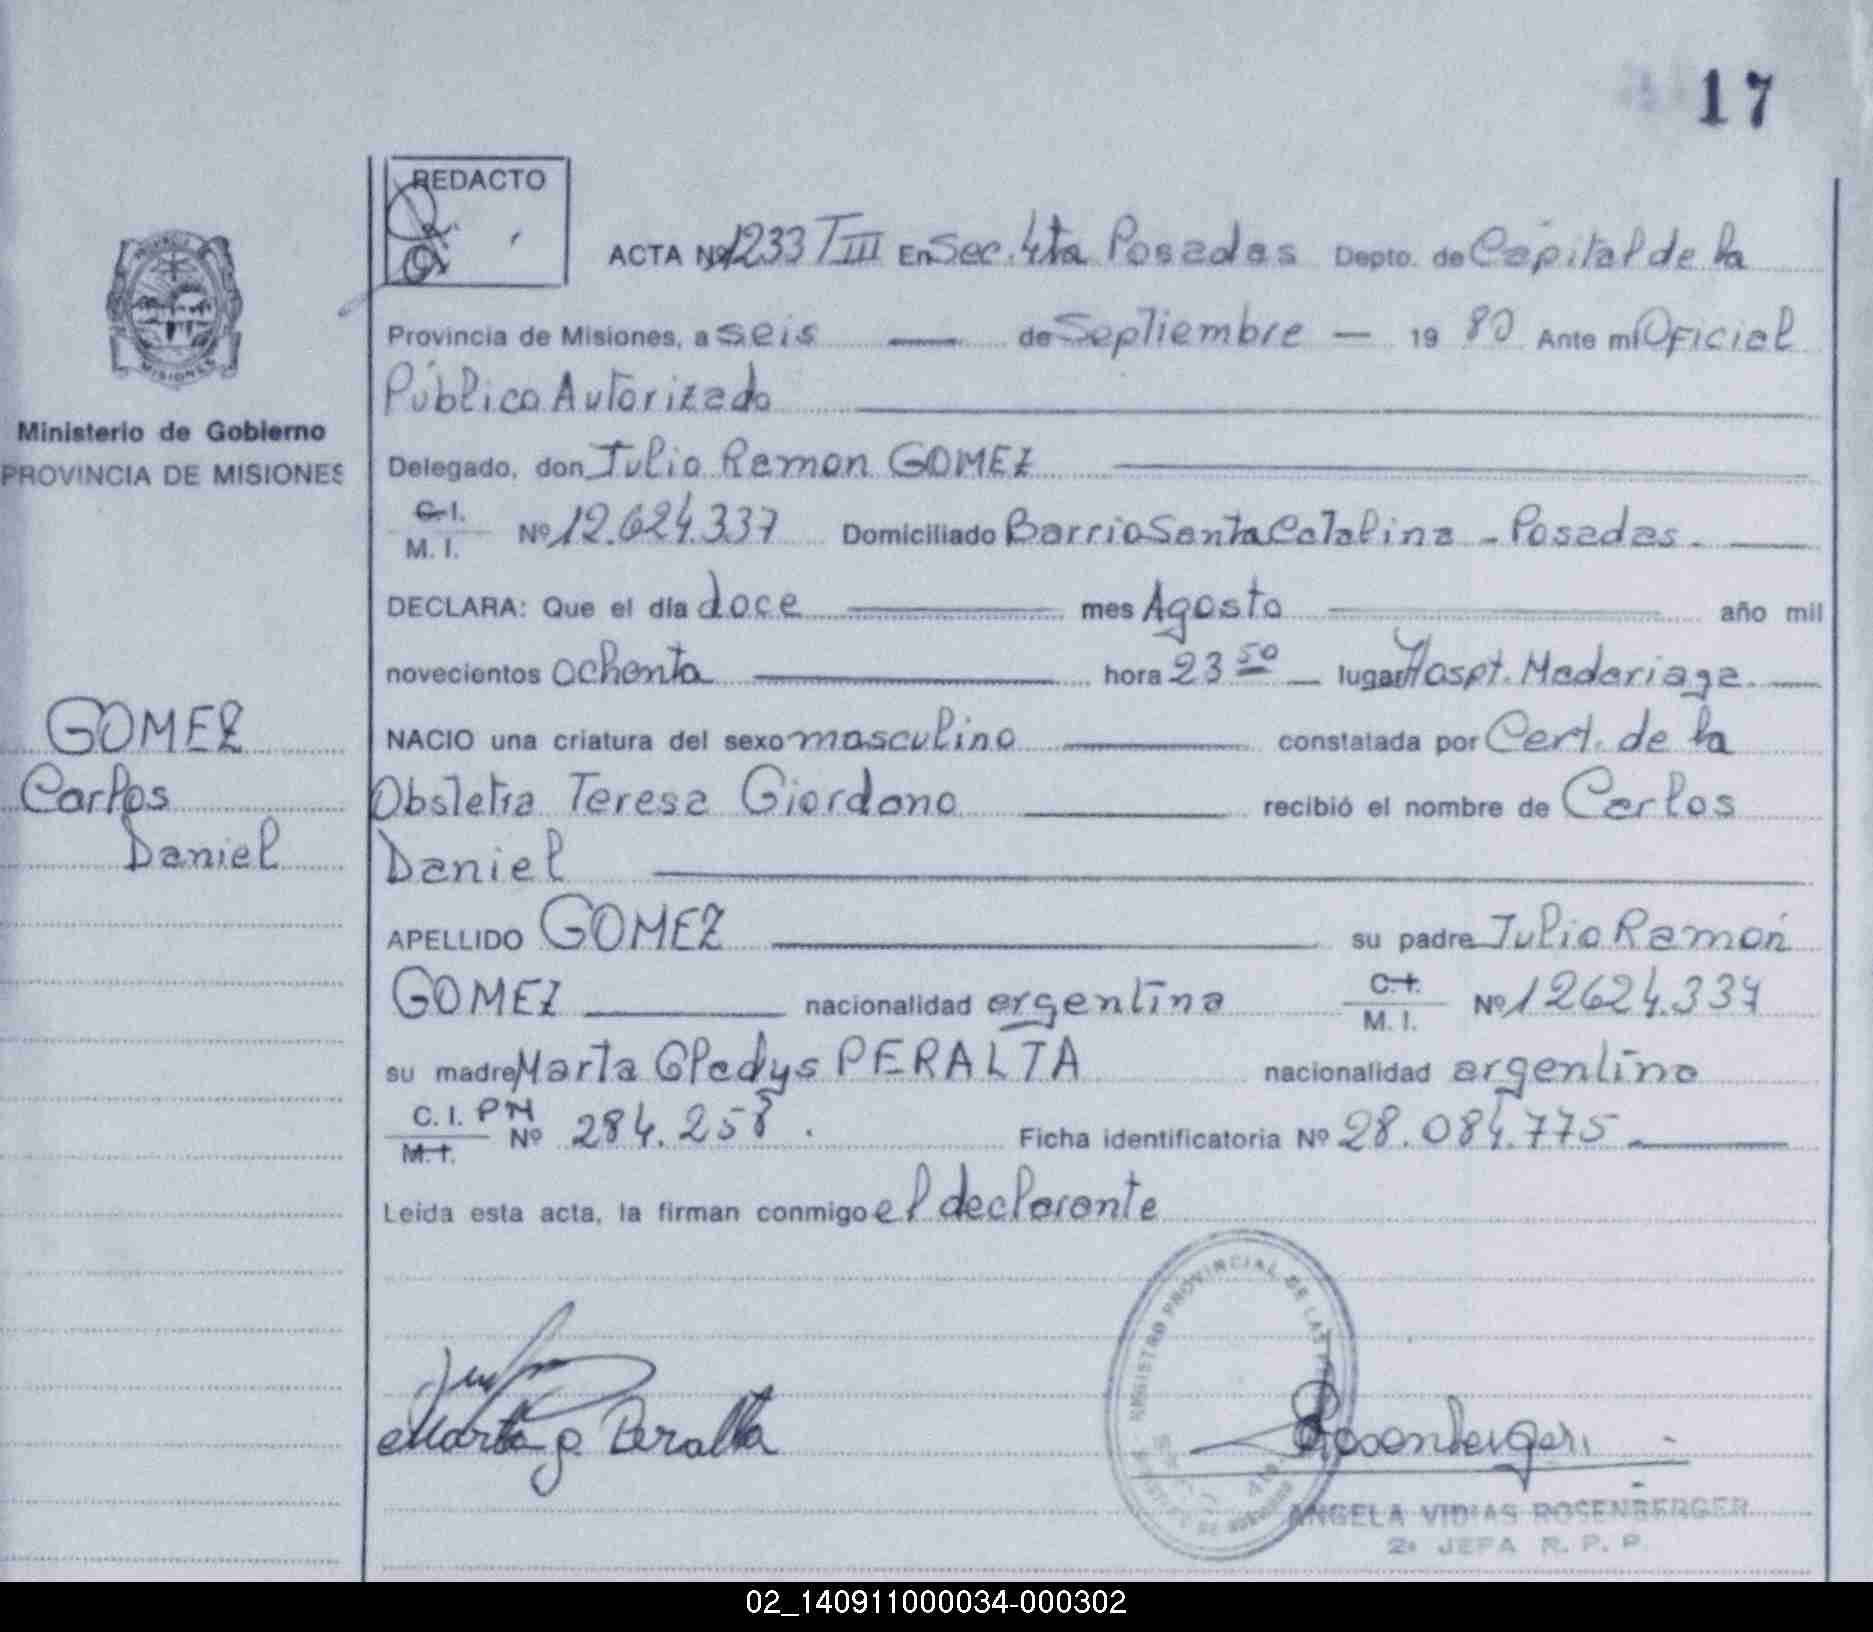 17
REDACTO
ACTA Nº 1233 T III En Sec. 4ta Posadas Depto. de Capital de la
Provincia de Misiones, a seis — de Septiembre — 19 80 Ante mí Oficial
Público Autorizado
Delegado, don Julio Ramon GOMEZ
C.I.
M.I. Nº 12.624.337 Domiciliado Barrio Santa Catalina - Posadas.
DECLARA: Que el día doce mes Agosto año mil
novecientos ochenta hora 23 50 lugar Hospt. Madariaga.
NACIO una criatura del sexo masculino constatada por Cert. de la
Obstetra Teresa Giordano recibió el nombre de Carlos
Daniel
APELLIDO GOMEZ su padre Julio Ramón
GOMEZ nacionalidad argentina C.I.
M.I. Nº 12624.337
su madre Marta Gladys PERALTA nacionalidad argentina
C.I. PM
M.I. Nº 284.258. Ficha identificatoria Nº 28.084.775
Leída esta acta, la firman conmigo el declarante
MISIONES
Ministerio de Gobierno
PROVINCIA DE MISIONES
GOMEZ
Carlos
Daniel
Marta g. Peralta
REGISTRO PROVINCIAL DE LAS
Rosenberger
ANGELA VIDIAS ROSENBERGER
2ª JEFA R.P.P.
02_140911000034-000302